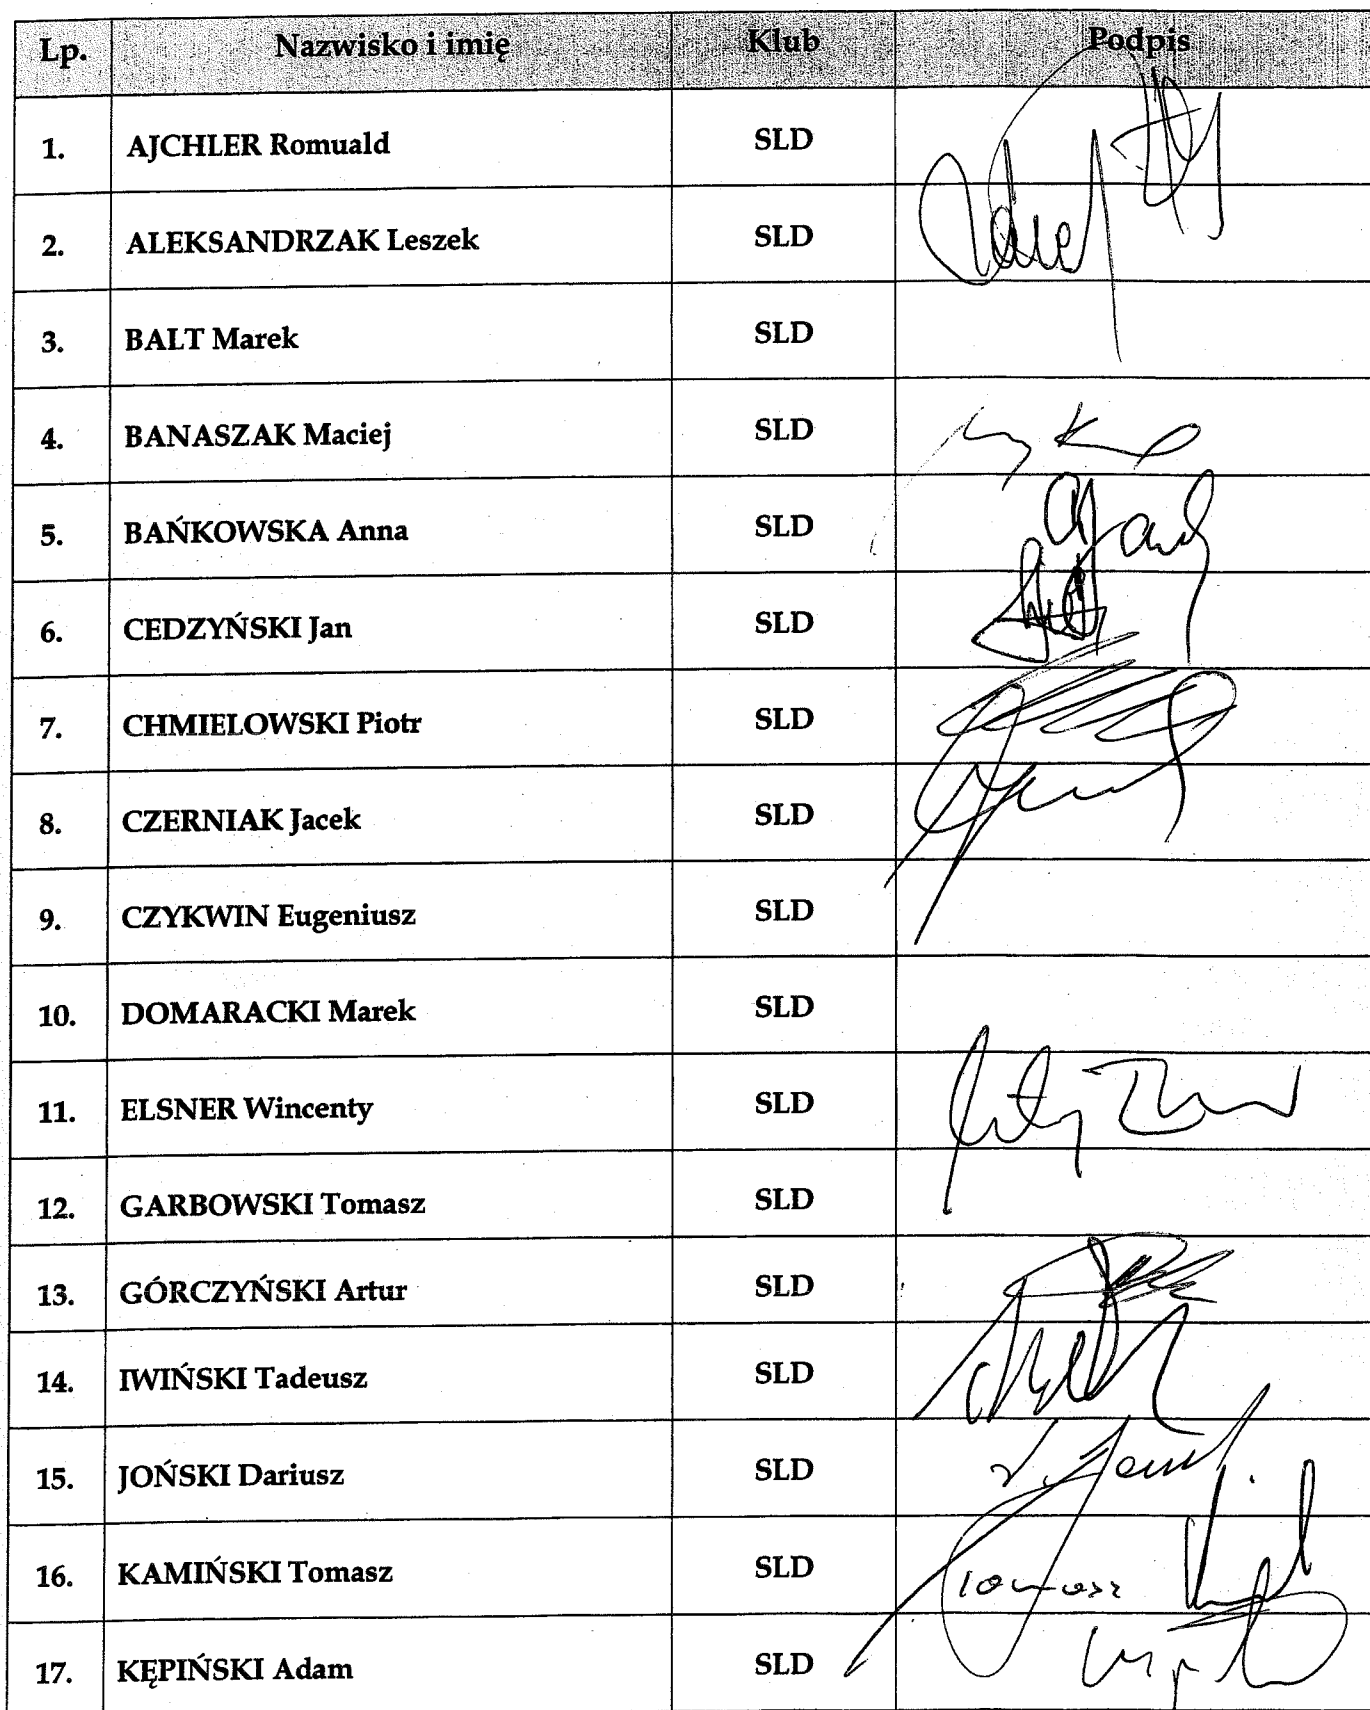 Lp. Nazwisko i imię Klub Podpis
1. AJCHLER Romuald SLD
2. ALEKSANDRZAK Leszek SLD
3. BALT Marek SLD
4. BANASZAK Maciej SLD
5. BAŃKOWSKA Anna SLD
6. CEDZYŃSKI Jan SLD
7. CHMIELOWSKI Piotr SLD
8. CZERNIAK Jacek SLD
9. CZYKWIN Eugeniusz SLD
10. DOMARACKI Marek SLD
11. ELSNER Wincenty SLD
12. GARBOWSKI Tomasz SLD
13. GÓRCZYŃSKI Artur SLD
14. IWIŃSKI Tadeusz SLD
15. JOŃSKI Dariusz SLD
16. KAMIŃSKI Tomasz SLD Tomasz
17. KĘPIŃSKI Adam SLD